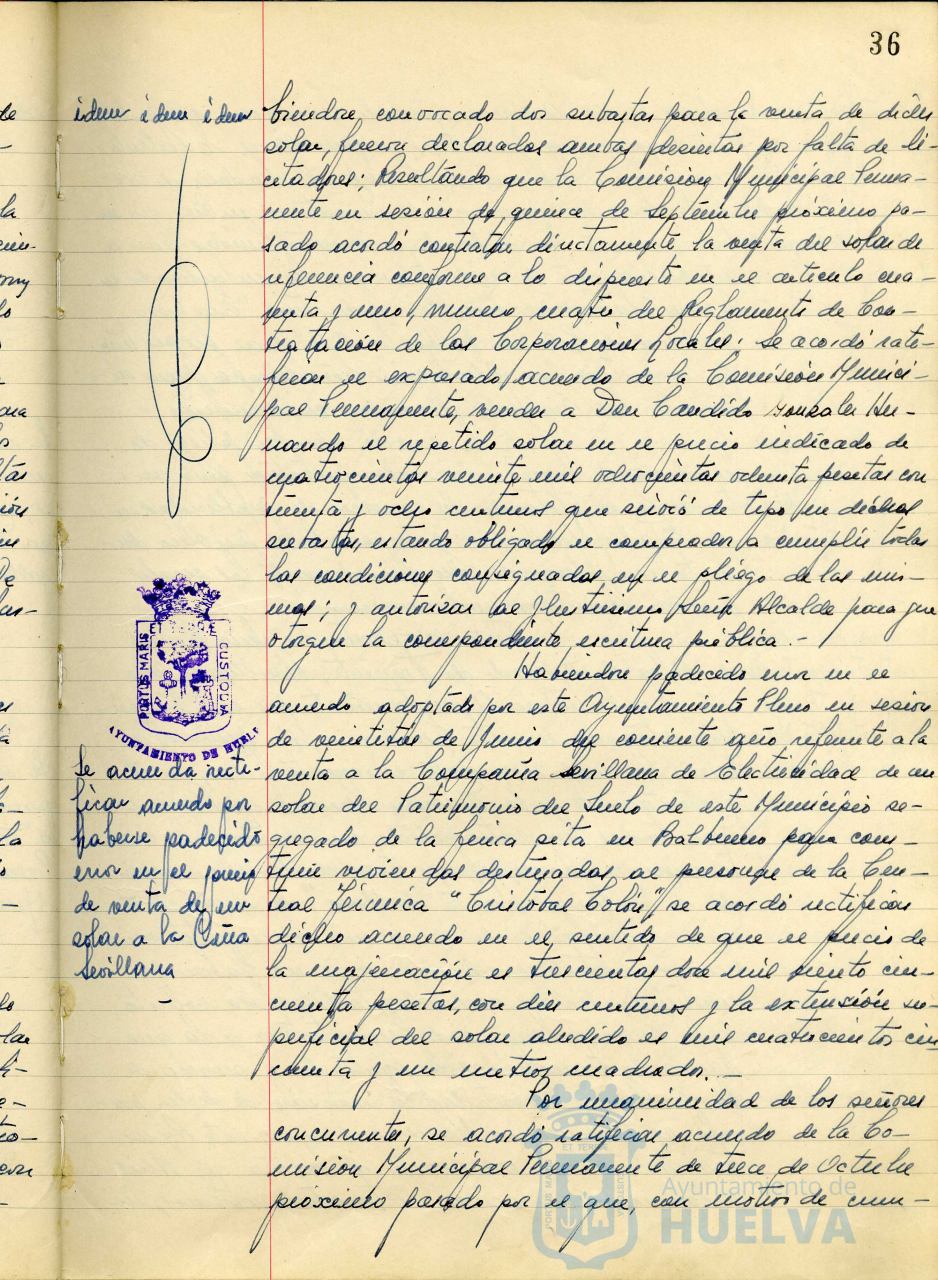 36
idem idem idem
biendose convocado dos subastas para la venta de dicho
solar, fueron declarados ambas desiertas por falta de li-
citadores; Resultando que la Comision Municipal Perma-
nente en sesión de quince de Septiembre próximo pa-
sado acordó contratar directamente la venta del solar de
referencia conforme a lo dispuesto en el articulo cua-
renta y uno, numero cuatro del Reglamento de Con-
tratación de las Corporaciones Locales: Se acordó rati-
ficar el expresado acuerdo de la Comisión Munici-
pal Permanente, vender a Don Candido Gonzalez Her-
nando el repetido solar en el precio indicado de
cuatrocientas veinte mil ochocientas ochenta pesetas con
treinta y ocho centimos que sirvió de tipo en dichas
subastas, estando obligado el comprador a cumplir todas
las condiciones consignadas en el pliego de las mis-
mas; y autorizar al Ilustrisimo Señor Alcalde para que
otorgue la correspondiente escritura pública.-
PORTUS MARIS
ET TERRE
CUSTODIA
AYUNTAMIENTO DE HUELV
Se acuerda recti-
ficar acuerdo por
haberse padecido
error en el precio
de venta de un
solar a la Cñia
Sevillana
-
Habiendose padecido error en el
acuerdo adoptado por este Ayuntamiento Pleno en sesion
de veintitres de Junio del corriente año referente a la
venta a la Compañia Sevillana de Electricidad de un
solar del Patrimonio del Suelo de este Municipio se-
gregado de la finca sita en Balbueno para cons-
truir viviendas destinadas al personal de la Cen-
tral Térmica "Cristóbal Colón", se acordó rectificar
dicho acuerdo en el sentido de que el precio de
la enajenación es trescientas doce mil ciento cin-
cuenta pesetas, con diez centimos y la extensión su-
perficial del solar aludido es mil cuatrocientos cin
cuenta y un metros cuadrados.-
Por unanimidad de los señores
concurrentes, se acordó ratificar acuerdo de la Co-
mision Municipal Permanente de trece de Octubre
próximo pasado por el que, con motivo de cum-
Ayuntamiento de
HUELVA